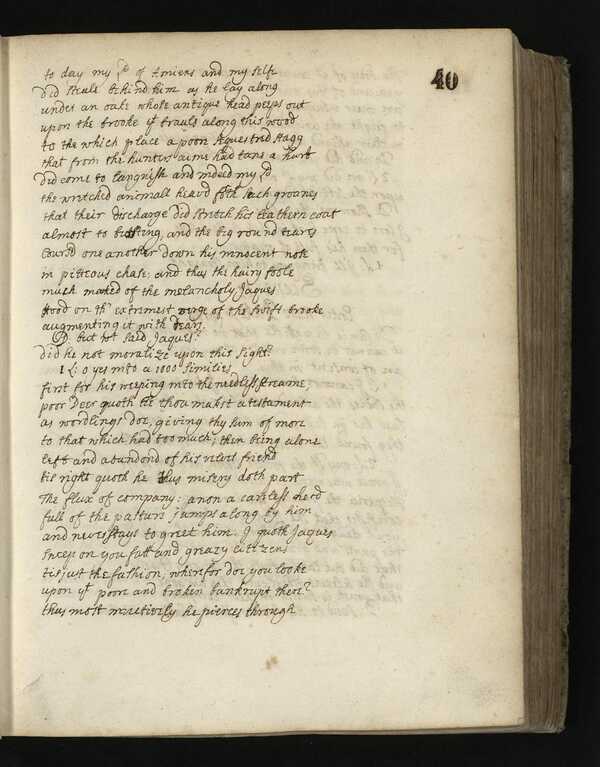 40
to day my Ld of Amiens and my self
did steale behind him as he lay along
under an oake whose antique head peeps out
upon the brooke yt brauls along this wood
to the which place a poor sequestred stagg
that from the hunters aime had tane a hurt
did come to languish and indeed my Ld
the wretched animall heav'd foth such groanes
that their discharge did stretch his leathern coat
almost to bursting, and the big round teares
cours'd one another down his innocent nose
in pitteous chase; and thus the hairy foole
much marked of the melancholy Jaques
stood on th' extremest verge of the swift brooke
augmenting it with tears.
D. but wt said Jaques?
did he not moralize upon this sight?
1 L: o yes into a 1000 similies
first for his weeping into the needless streame;
poor Deer quoth he thou makst a testament
as wordlings doe, giving thy sum of more
to that which had too much; then being alone
left and abandond of his velvet friend
tis right quoth he thus misery doth part
The flux of company: anon a careless herd
full of the pasture jumps along by him
and never stays to greet him. I quoth Jaques
sweep on you fatt and greazy citizens
tis just the fashion, wherfor doe you looke
upon yt poore and broken bankrupt there?
thus most invectively he pierces through